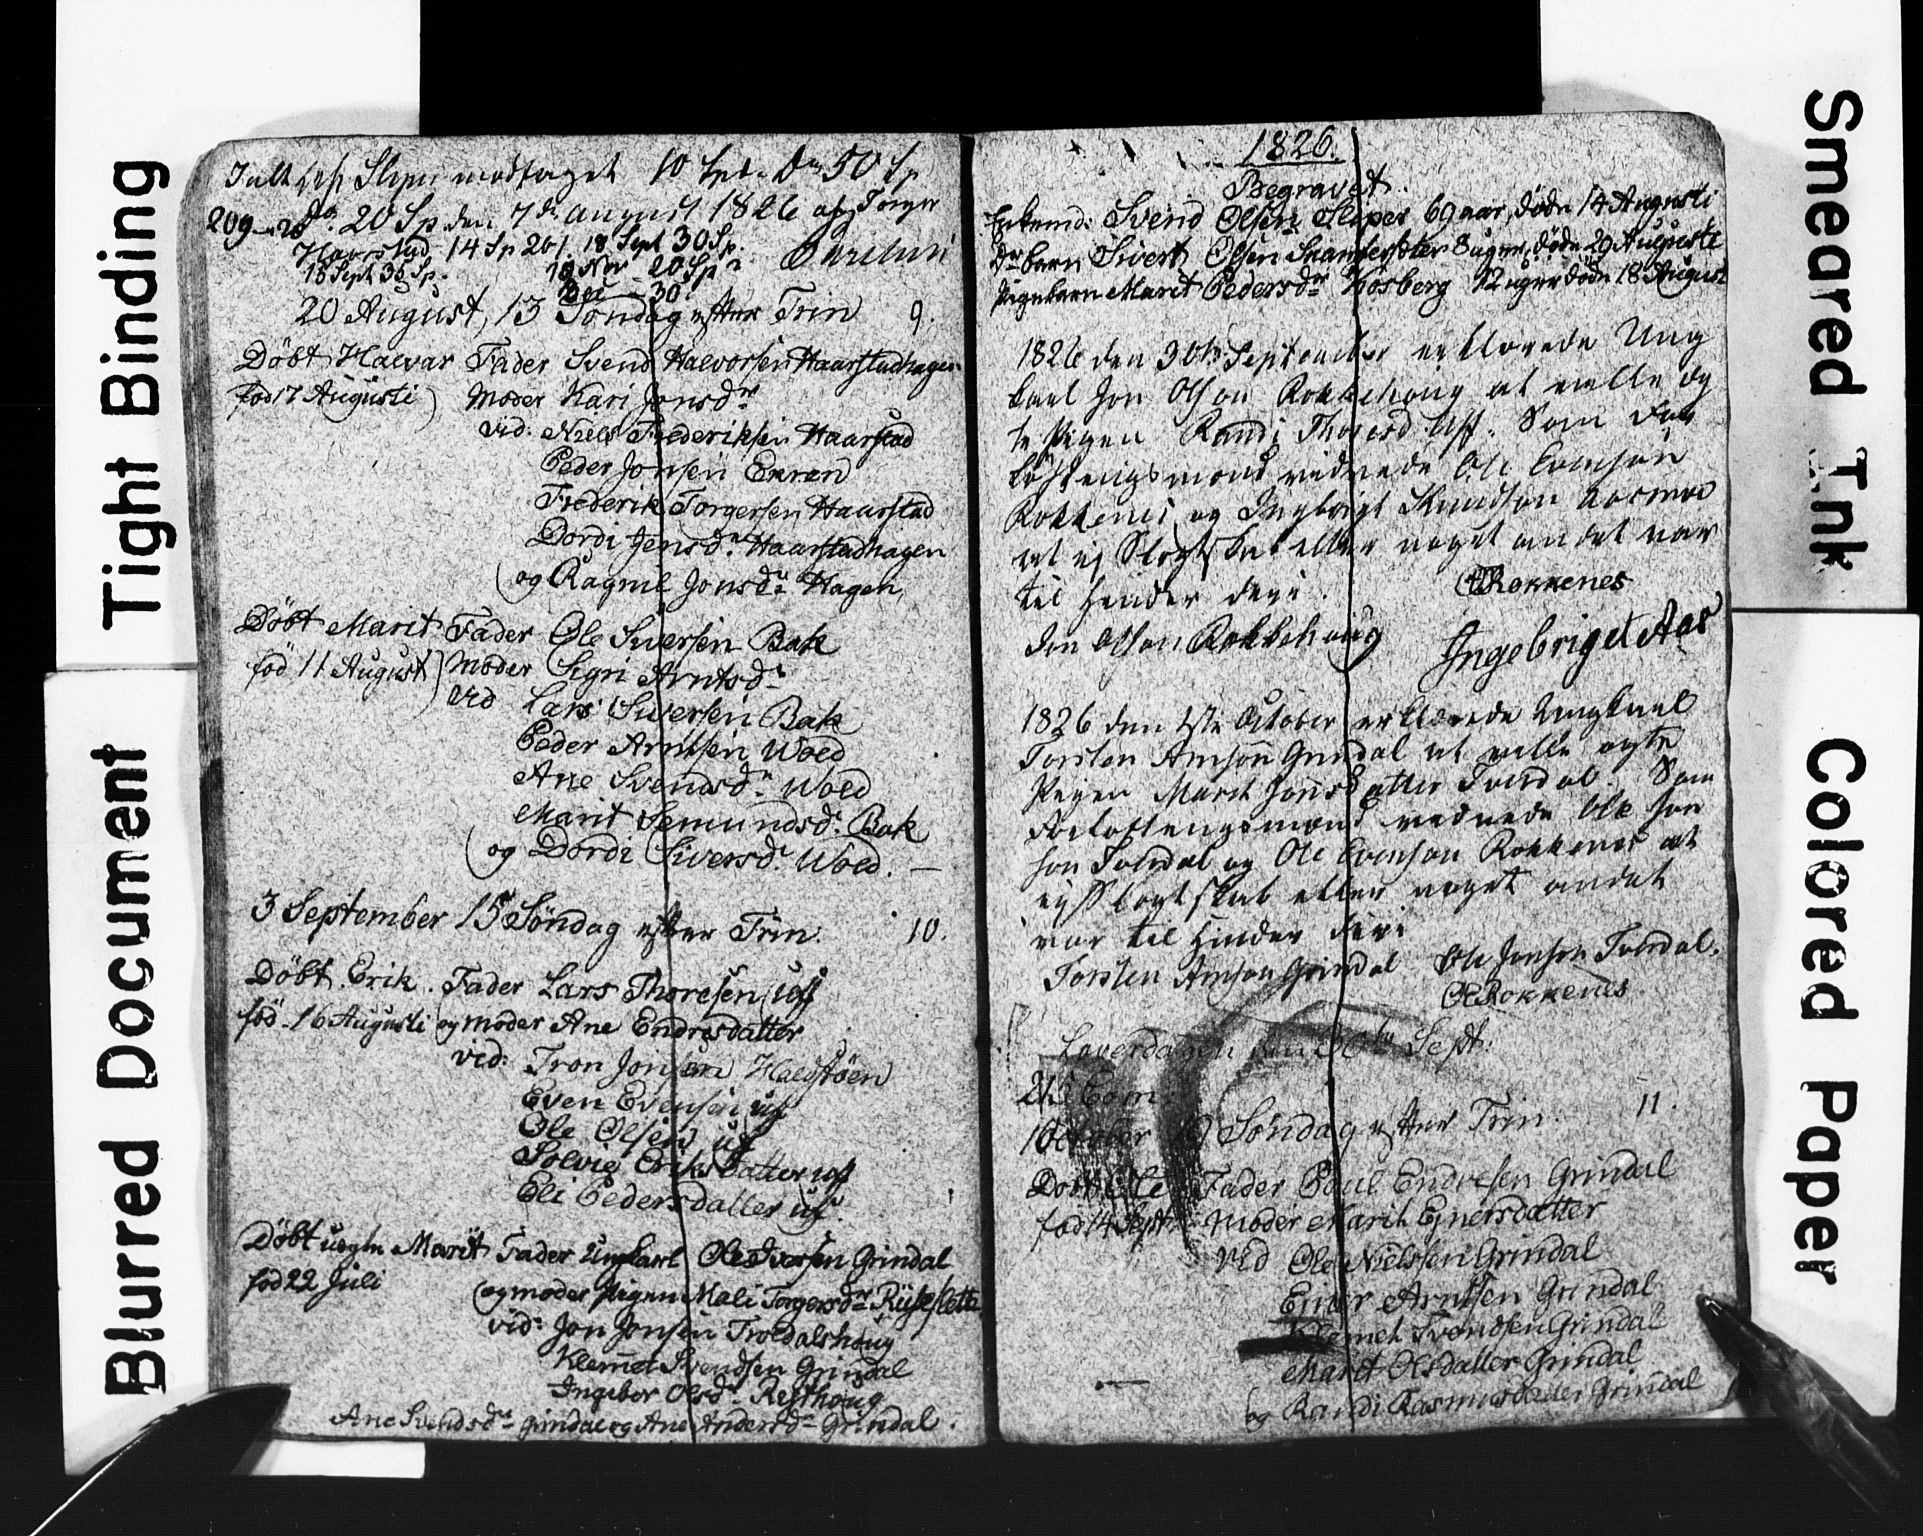 Tight Binding
Blurred Document
modtaget 10 Spd. 50 Sp
209 20 Sp den 7de august 1826 af
Haarstad 14 Sp 18 Sept 30 Sp.
18 Sept 30 Sp. 18 Nov 20 Sp
Dec 30
20 August, 13 Søndag efter Trin 9.
Döbt Halvar Fader Svend Halvorsen Haarstadhagen
fød 17 Augusti) Moder Kari Jonsdr
vid: Niels Frederiksen Haarstad
Peder Jonsen Ekren
Frederik Torgersen Haarstad
Dordi Jensdr Haarstadhagen
(og Ragnil Jonsdr Hagen
Döbt Marit Fader Ole Siversen Bak
fød 11 August) Moder Sigri Arntsdr
vid Lars Siversen Bak
Peder Arntsen Wold
Ane Svendsdr Wold
Marit Semundsdr. Bak
(og Dordi Siversdr. Wold. —
3 September 15 Søndag efter Trin. 10.
Döbt Erik. Fader Lars Thoresen Uf
fød 16 Augusti (og Moder Ane Endresdatter
vid: Tron Jonsen Haldstøen
Even Evensen uf
Ole Olsen uf
Solvie Eriksdatter uf
Eli Pedersdatter uf
Döbt uegte Marit Fader Ungkarl Ole Ivarsen Grindal
fød 22 Juli (og moder Pigen Mali Torgersdr
vid: Jon Jonsen Troldalshoug
Klemet Svendsen Grindal
Ingebor Olsdr. Resthoug
Ane Svendsdr Grindal og Ane Andersdr Grindal.
1826.
Begravet
Svend Olsen Sliper 69 aar, døde 14 Augusti
barn Sivert Olsen 8 uger, døde 29 Augusti
Pigebarn Marit Pedersdr Hosberg 12 uger døde 18 August
1826 den 30te September erklærede Ung
karl Jon Olson Rokkehoug at ville og
te Pigen Randi Thoresd Uff. Som For
løftningsmænd vedrede Ole Evensøn
Rokkenes og Ingbrigt Knudson Aasmoe
at ej Slegtskab eller noget andet var
til Hinder deri.
ERokkenes
Jon Olson Rokkehoug Ingebriget Aas
1826 den 1ste October erklærede Ungkarl
Torsten Arnson Grindal at ville egte
Pigen Marit Jonsdatter Troldal Som
Forloftningsmænd vedrede Ole Jon
son Troldal og Ole Evenson Rokkenes at
ej Slegtskab eller noget andet
var til Hinder deri
Torsten Arnson Grindal Ole Jonson Troldal.
OERokkenes
Løverdagen den 30te Sept:
215 Com:
1 October 19 Søndag efter Trin. 11.
Döbt Ole Fader Poul Endresen Grindal
fød 14 Sept. Moder Marit Ejnersdatter
vid Ole Nielssen Grindal
Ener Arntsen Grindal
Klemet Svendsen Grindal
Marit Olsdatter Grindal
(og Randi Rasmusdatter Grindal
Smeared Ink
Colored Paper